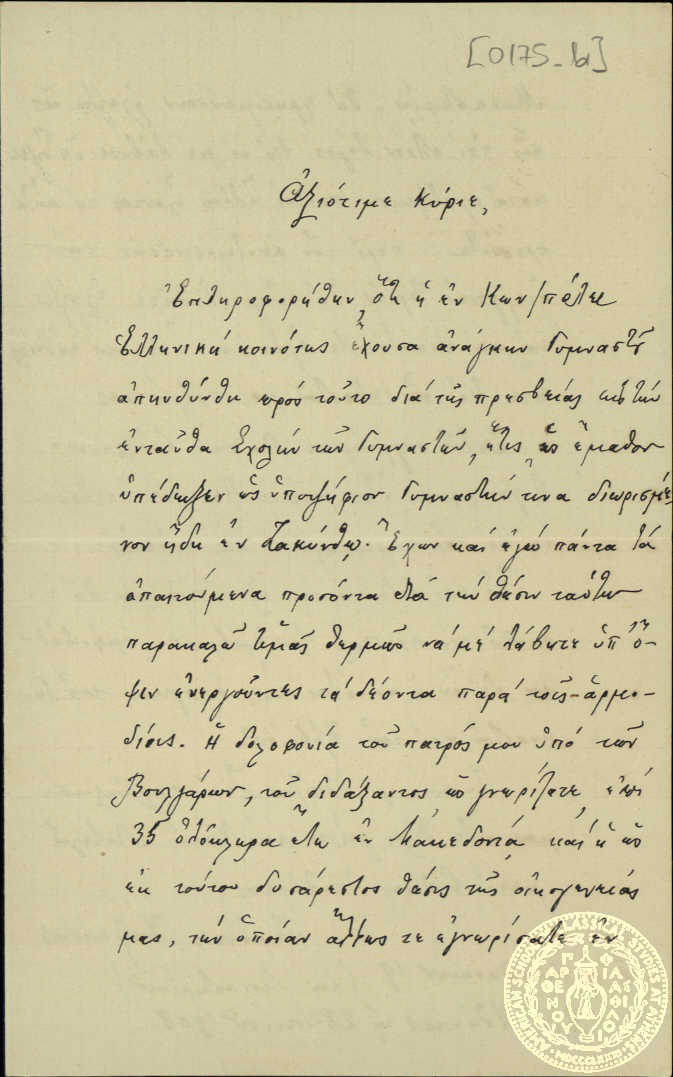 [0175_b]
Ἀξιότιμε Κύριε,
Ἐπληροφορήθην ὅτι ἡ ἐν Κων/πόλει
Ἑλληνική κοινότης ἔχουσα ἀνάγκην Γυμναστοῦ
ἀπηυθύνθη πρός τοῦτο διά τῆς πρεσβείας εἰς τήν
ἐνταῦθα Σχολήν τῶν Γυμναστῶν, ἥτις ὡς ἔμαθον
ὑπέδειξεν ὡς ὑποψήφιον Γυμναστήν τινα διωρισμέ-
νον ἤδη ἐν Ζακύνθῳ. Ἔχων καί ἐγώ πάντα τά
ἀπαιτούμενα προσόντα διά τήν θέσιν ταύτην
παρακαλῶ ὑμᾶς θερμῶς νά μέ λάβητε ὑπ' ὄ-
ψιν ἐνεργοῦντες τά δέοντα παρά τοῖς ἁρμο-
δίοις. Ἡ δολοφονία τοῦ πατρός μου ὑπό τῶν
Βουλγάρων, τοῦ διδάξαντος ὡς γνωρίζετε ἐπί
35 ὁλόκληρα ἔτη ἐν Μακεδονίᾳ καί ἡ ὡς
ἐκ τούτου δυσάρεστος θέσις τῆς οἰκογενείας
μας, τήν ὁποίαν ἄλλως τε ἐγνωρίσατε ἐν
AMERICAN SCHOOL OF CLASSICAL STUDIES AT ATHENS
ΠΑΡΘΕΝΟΥ ΦΙΛΑΣ ΦΙΛΟΙ
MDCCCLXXXI